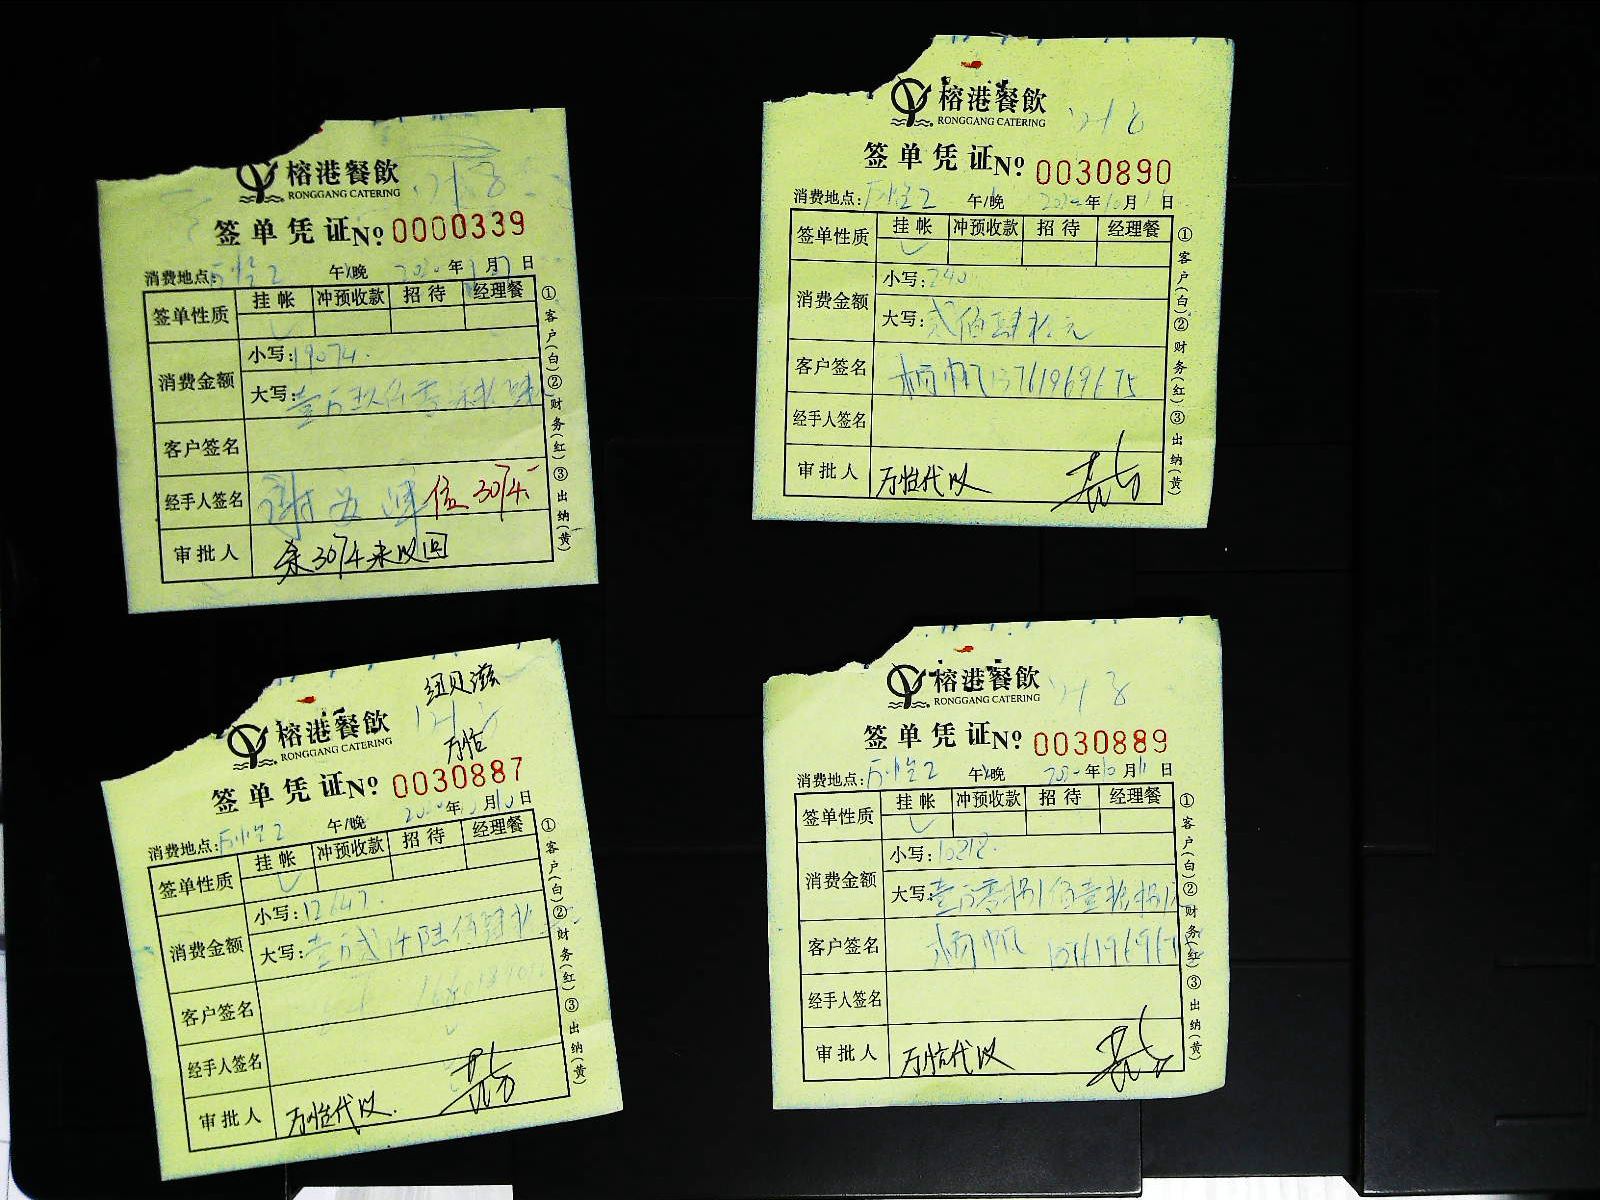 榕港餐飲
RONGGANG CATERING
签单凭证 № 0000339
消费地点: 万怡2 午/晚 2020年 月 日
签单性质 挂帐 冲预收款 招待 经理餐
消费金额 小写: 19074.
大写: 壹万玖仟零柒拾肆
客户签名
经手人签名 3074.
审批人 余3074未收回
①客户(白)②财务(红)③出纳(黄)
榕港餐飲
RONGGANG CATERING
签单凭证 № 0030890
消费地点: 万怡2 午/晚 年10月 日
签单性质 挂帐 冲预收款 招待 经理餐
消费金额 小写: 240
大写: 贰佰肆拾元
客户签名 杨帆13761969675
经手人签名
审批人 万怡代收
①客户(白)②财务(红)③出纳(黄)
纽贝滋
万怡
榕港餐飲
RONGGANG CATERING
签单凭证 № 0030887
消费地点: 万怡2 午/晚 2020年 月10日
签单性质 挂帐 冲预收款 招待 经理餐
消费金额 小写: 12647.
大写: 壹万贰仟陆佰肆拾
客户签名
经手人签名
审批人 万怡代收.
①客户(白)②财务(红)③出纳(黄)
榕港餐飲
RONGGANG CATERING
签单凭证 № 0030889
消费地点: 万怡2 午/晚 2020年10月11日
签单性质 挂帐 冲预收款 招待 经理餐
消费金额 小写: 10818.
大写: 壹万零捌佰壹拾捌
客户签名 杨帆
经手人签名
审批人 万怡代收
①客户(白)②财务(红)③出纳(黄)